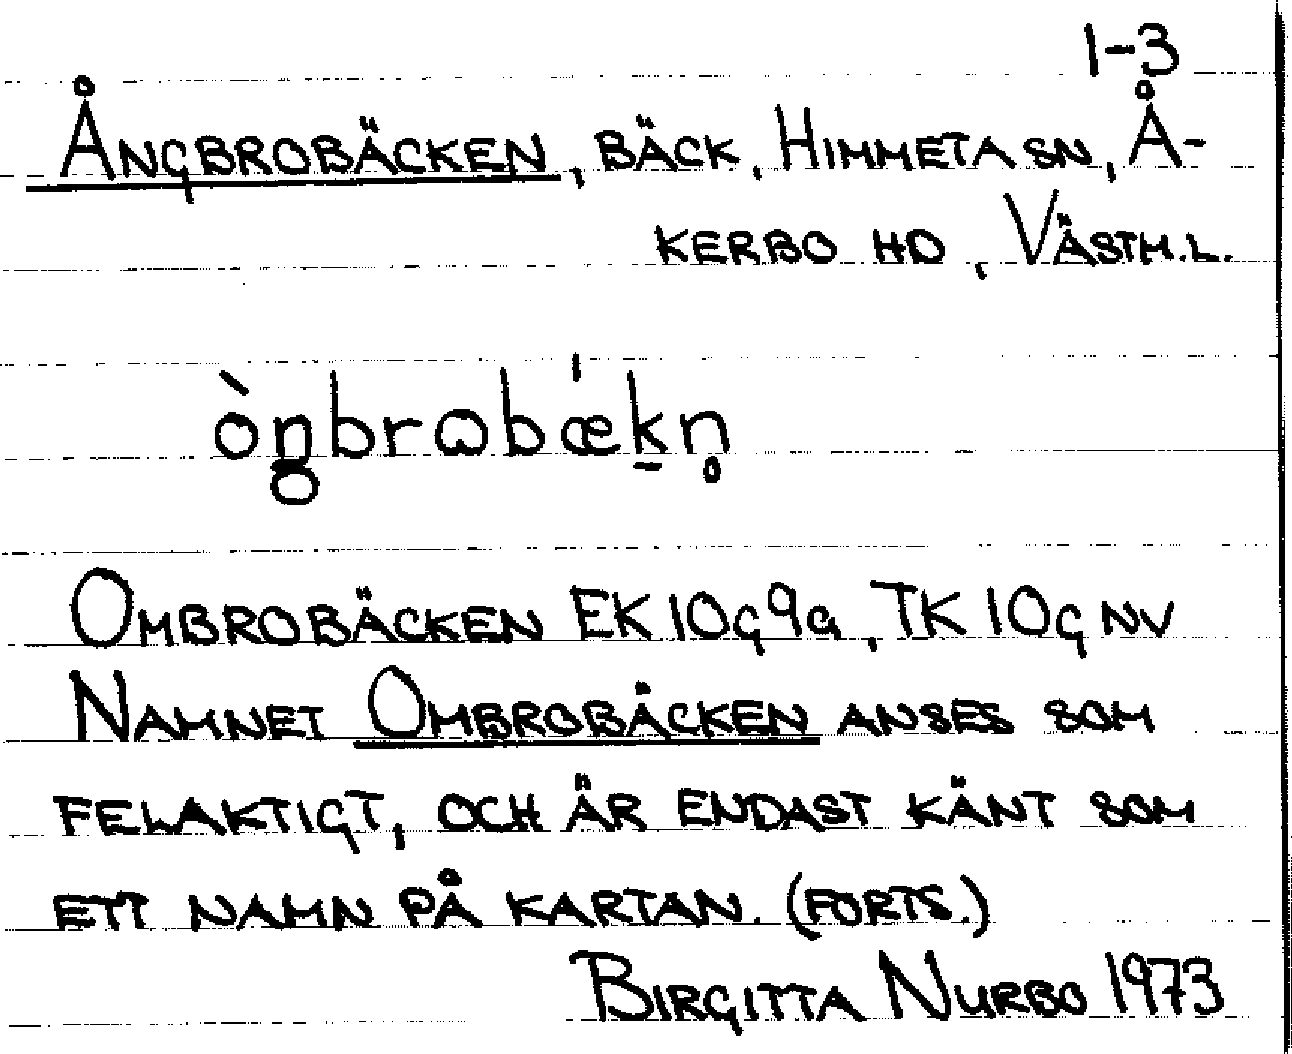 1-3
Ångbrobäcken, bäck, Himmeta sn, Å-
kerbo hd, Västm.l.
òn̠gbrɷbǽk̠n̥
Ombrobäcken EK 10g9a, TK 10g NV
Namnet Ombrobäcken anses som
felaktigt, och är endast känt som
ett namn på kartan. (forts.)
Birgitta Nurbo 1973